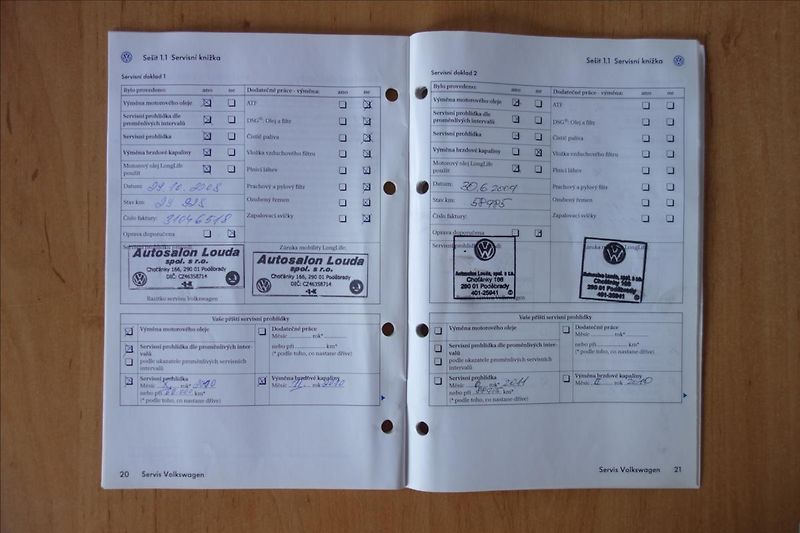 Sešit 1.1 Servisní knížka
Servisní doklad 1
Bylo provedeno: ano ne
Výměna motorového oleje
Servisní prohlídka dle
proměnlivých intervalů
Servisní prohlídka
Výměna brzdové kapaliny
Motorový olej LongLife
použit
Datum: 29.10.2008
Stav km: 29 928
Číslo faktury: 31046518
Oprava doporučena
Dodatečné práce - výměna: ano ne
ATF
DSG®: Olej a filtr
Čistič paliva
Vložka vzduchového filtru
Plnicí láhev
Prachový a pylový filtr
Ozubený řemen
Zapalovací svíčky
Záruka mobility LongLife:
Autosalon Louda
spol. s r.o.
Choťánky 166, 290 01 Poděbrady
DIČ: CZ46358714
-14-
Autosalon Louda
spol. s r.o.
Choťánky 166, 290 01 Poděbrady
DIČ: CZ46358714
-14-
Razítko servisu Volkswagen
Vaše příští servisní prohlídky
Výměna motorového oleje
Servisní prohlídka dle proměnlivých inter-
valů
podle ukazatele proměnlivých servisních
intervalů
Servisní prohlídka
Měsíc rok* 2010
nebo při km*
(* podle toho, co nastane dříve)
Dodatečné práce
Měsíc rok*
nebo při km*
(* podle toho, co nastane dříve)
Výměna brzdové kapaliny
Měsíc II rok 2010
20 Servis Volkswagen
Sešit 1.1 Servisní knížka
Servisní doklad 2
Bylo provedeno: ano ne
Výměna motorového oleje
Servisní prohlídka dle
proměnlivých intervalů
Servisní prohlídka
Výměna brzdové kapaliny
Motorový olej LongLife
použit
Datum: 30.6.2009
Stav km: 58985
Číslo faktury:
Oprava doporučena
Dodatečné práce - výměna: ano ne
ATF
DSG®: Olej a filtr
Čistič paliva
Vložka vzduchového filtru
Plnicí láhev
Prachový a pylový filtr
Ozubený řemen
Zapalovací svíčky
Autosalon Louda, spol. s r.o.
Choťánky 166
290 01 Poděbrady
401-25041
Autosalon Louda, spol. s r.o.
Choťánky 166
290 01 Poděbrady
401-25041
Vaše příští servisní prohlídky
Výměna motorového oleje
Servisní prohlídka dle proměnlivých inter-
valů
podle ukazatele proměnlivých servisních
intervalů
Servisní prohlídka
Měsíc rok* 2011
nebo při km*
(* podle toho, co nastane dříve)
Dodatečné práce
Měsíc rok*
nebo při km*
(* podle toho, co nastane dříve)
Výměna brzdové kapaliny
Měsíc II rok 2010
Servis Volkswagen 21